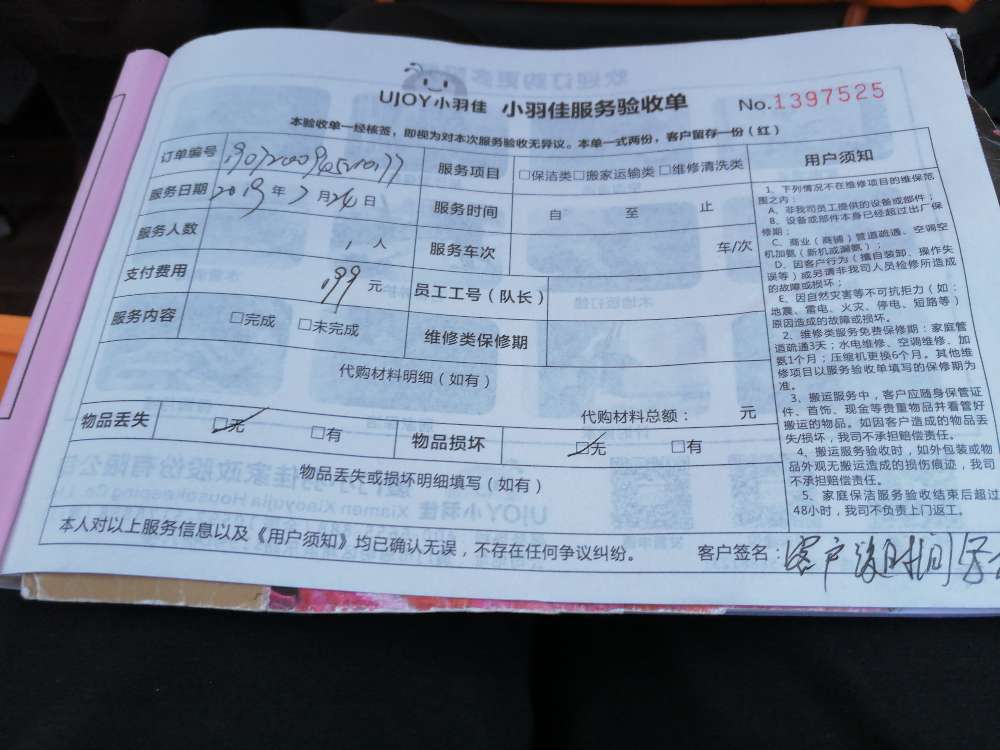 UJOY小羽佳 小羽佳服务验收单 No.1397525
本验收单一经核签，即视为对本次服务验收无异议。本单一式两份，客户留存一份（红）
订单编号 服务项目 □保洁类□搬家运输类□维修清洗类
服务日期 2019年7月24日 服务时间 自 至 止
服务人数 1人 服务车次 车/次
支付费用 199元 员工工号（队长）
服务内容 □完成 □未完成 维修类保修期
代购材料明细（如有）
代购材料总额： 元
物品丢失 □无 □有 物品损坏 □无 □有
物品丢失或损坏明细填写（如有）
用户须知
1、下列情况不在维修项目的维保范
围之内：
A、非我司员工提供的设备或部件；
B、设备或部件本身已经超过出厂保
修期；
C、商业（商铺）管道疏通、空调空
机加氨（新机或漏氨）；
D、因客户行为（擅自装卸、操作失
误等）或另请非我司人员检修所造成
的故障或损坏；
E、因自然灾害等不可抗拒力（如：
地震、雷电、火灾、停电、短路等）
原因造成的故障或损坏。
2、维修类服务免费保修期：家庭管
道疏通3天；水电维修、空调维修、加
氨1个月；压缩机更换6个月。其他维
修项目以服务验收单填写的保修期为
准。
3、搬运服务中，客户应随身保管证
件、首饰、现金等贵重物品并看管好
搬运的物品。如因客户造成的物品丢
失/损坏，我司不承担赔偿责任。
4、搬运服务验收时，如外包装或物
品外观无搬运造成的损伤痕迹，我司
不承担赔偿责任。
5、家庭保洁服务验收结束后超过
48小时，我司不负责上门返工。
本人对以上服务信息以及《用户须知》均已确认无误，不存在任何争议纠纷。 客户签名：客户没时间